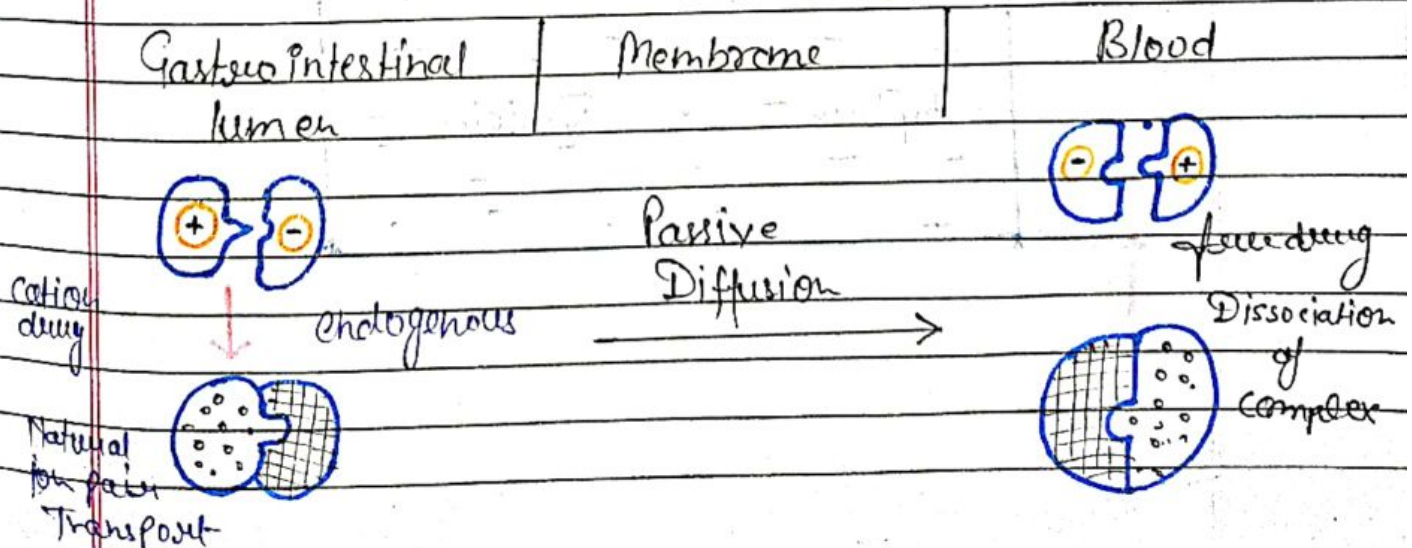 Gastrointestinal
lumen
Membrane
Blood
+
-
-
+
Passive
Diffusion
free drug
cation
drug
endogenous
Dissociation
of
complex
Natural
Ion pair
Transport